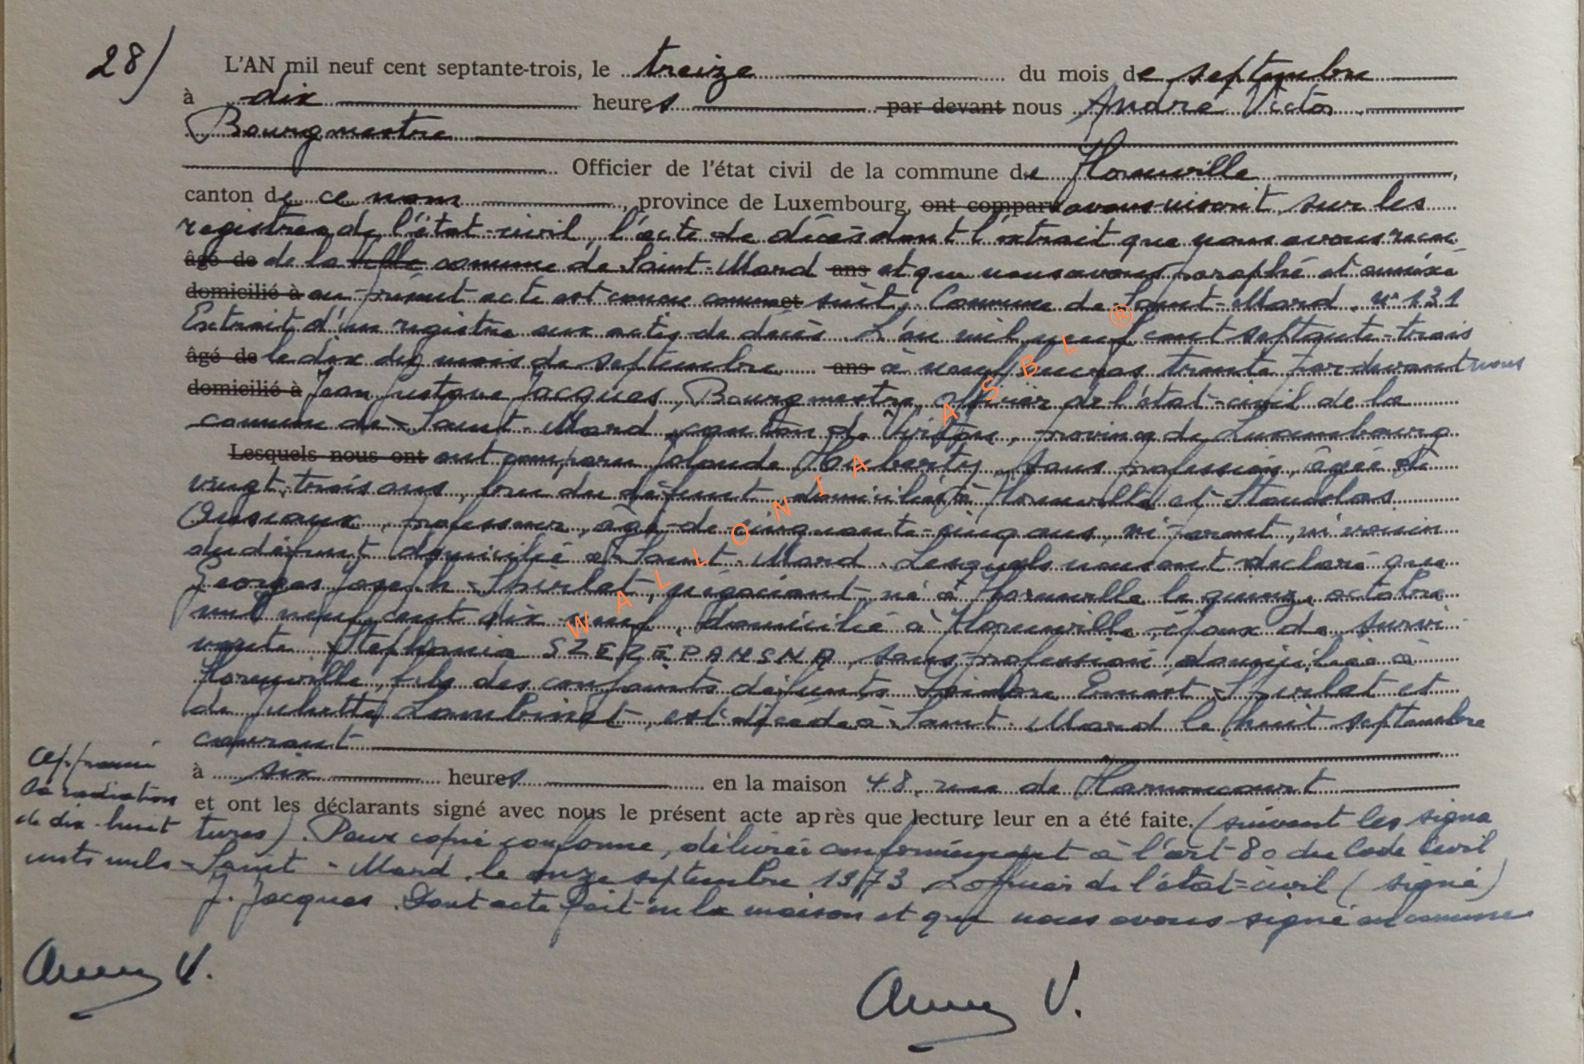 28)
L'AN mil neuf cent septante-trois, le treize du mois de septembre
à dix heures par devant nous André Victor
Bourgmestre
Officier de l'état civil de la commune de Florenville,
canton de ce nom, province de Luxembourg, ont comparu avons inscrit sur les
registres de l'état-civil, l'acte de décès dont l'extrait que nous avons recu
âgé de de la ville commune de Saint-Mard ans et que nous avons paraphé et annéxé
domicilié à au présent acte est connu comme et suit, Commune de Saint-Mard. n° 131
Extrait d'un registre aux actes de décès. L'an mil neuf cent septante-trois
âgé de le dix du mois de septembre ans à neuf heures trente par devant nous
domicilié à Jean Gustave Jacques, Bourgmestre, officier de l'état-civil de la
commune de Saint-Mard, canton de Virton, province de Luxembourg
Lesquels nous ont ont comparu Jolande, sans profession, âgée de
vingt trois ans, bru du défunt, domiciliée à Florenville et Stanislas
professeur, âgé de cinquante-cinq ans, ni parent, ni voisin
du défunt domicilié à Saint-Mard. Lesquels nous ont déclaré que
Georges Joseph Thirlet, négociant, né à Florenville le quinze octobre
mil neuf cent dix-neuf, domicilié à Florenville, époux de survi
vante Stephania SZEZEPAMSNA, sans profession domiciliée à
Florenville, fils des conjoints défunts Ernest Thirlet et
de Juliette Lambinet, est décédé à Saint-Mard le huit septembre
courant
à six heures en la maison 48, rue de Harnoncourt
et ont les déclarants signé avec nous le présent acte après que lecture leur en a été faite. (suivent les signa
tures). Pour copie conforme, délivrée conformément à l'art 80 du Code Civil
Saint-Mard, le onze septembre 1973 L'officier de l'état-civil (signé)
J. Jacques. Dont acte fait en la maison et que nous avons signé
Approuvé
la radiation
de dix-huit
mots nuls
V.
V.
WALLONIA ASBL ®